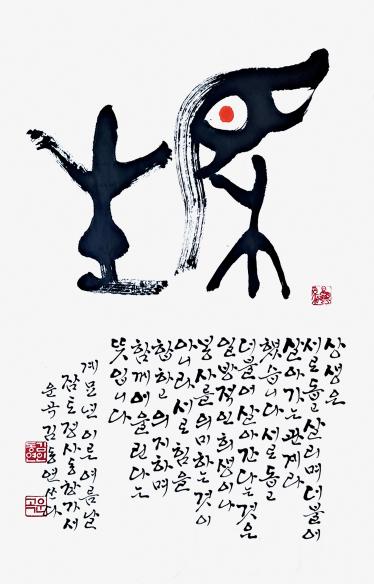 相生
상생은
서로 돕고 살리며 더불어
살아가는 관계라
했습니다 서로 돕고
더불어 살아간다는 것은
일방적인 희생이나
봉사를 의미하는 것이
아니라 서로 힘을
합하고 의지하며
함께 어울린다는
뜻입니다
계묘년 이른 여름날
운곡 김동연 쓰다